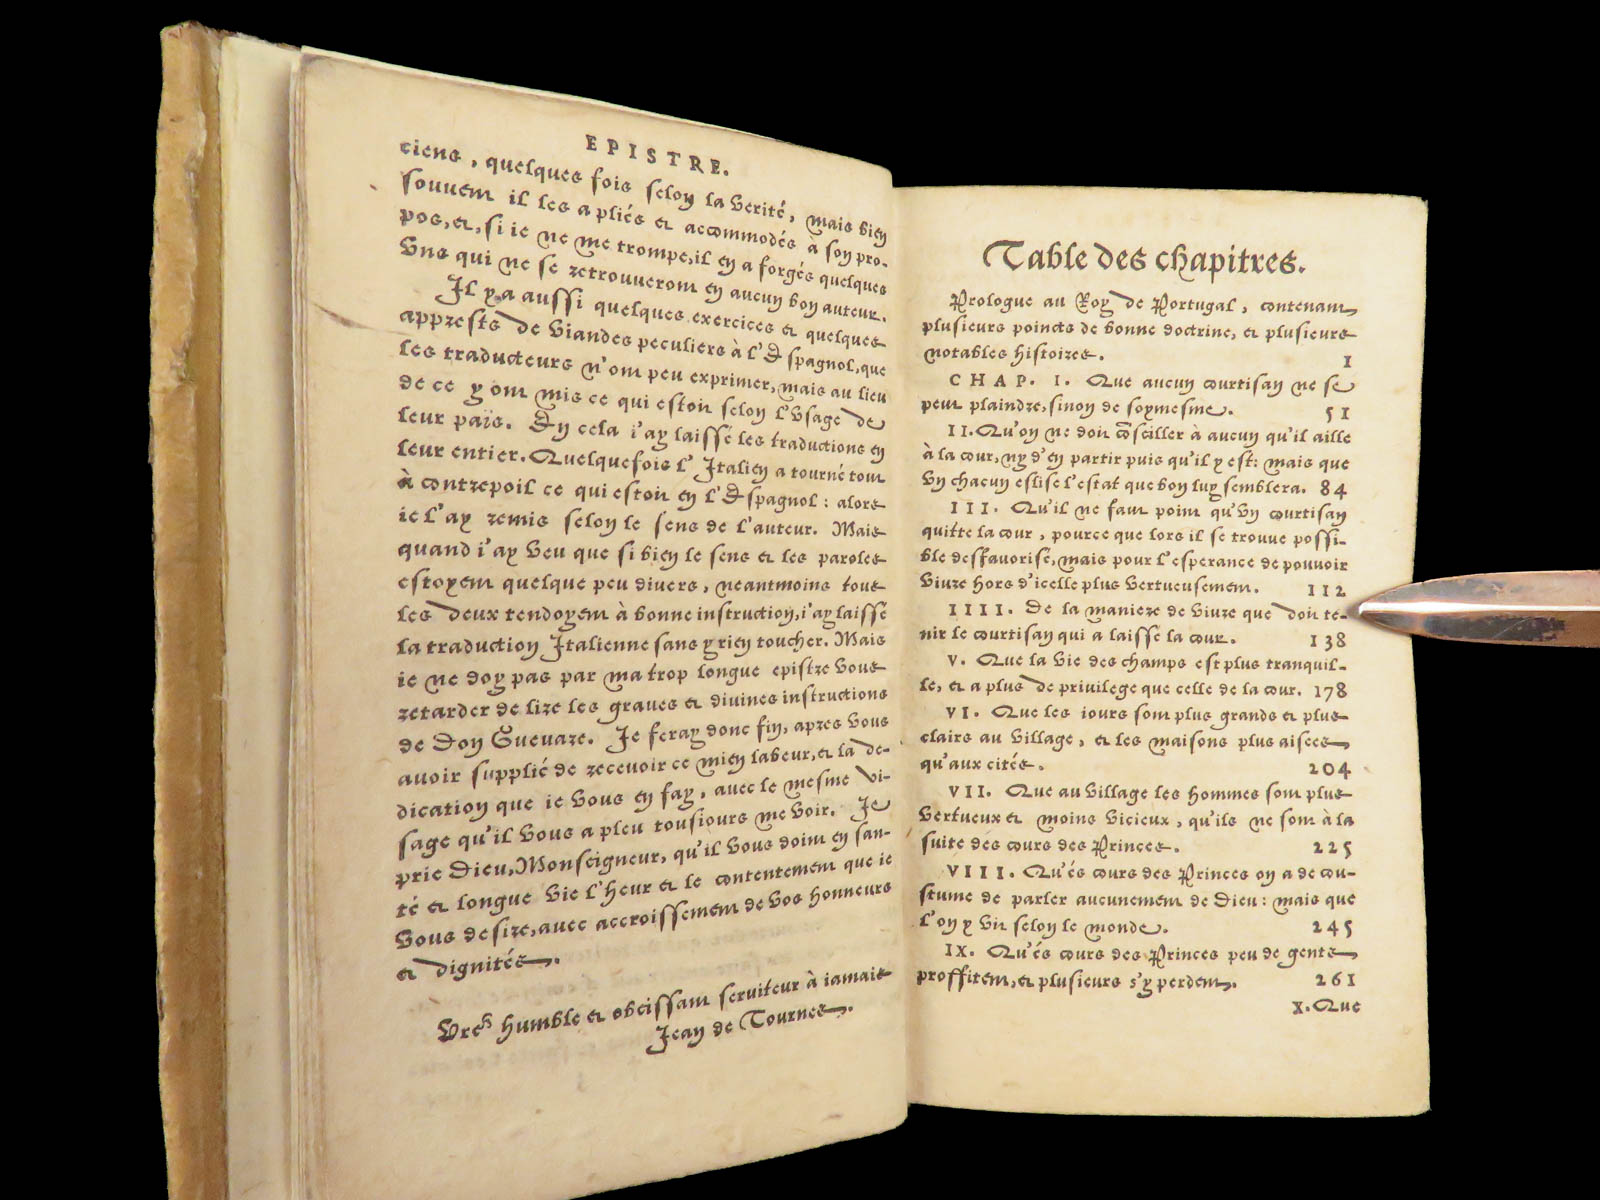 EPISTRE.
ciens, quelques fois selon la verité, mais bien
souuent il les a pliés & accommodés à son pro-
pos, &, si ie ne me trompe, il en a forgés quelques
vns qui ne se retrouueront en aucun bon auteur.
Il y a aussi quelques exercices & quelques
apprests de viandes peculiers à l'Espagnol, que
les traducteurs n'ont peu exprimer, mais au lieu
de ce y ont mis ce qui estoit selon l'vsage de
leur païs. En cela i'ay laissé les traductions en
leur entier. Quelquefois l'Italien a tourné tout
à contrepoil ce qui estoit en l'Espagnol: alors
ie l'ay remis selon le sens de l'auteur. Mais
quand i'ay veu que si bien le sens & les paroles
estoyent quelque peu divers, neantmoins tous
les deux tendoyent à bonne instruction, i'ay laissé
la traduction Italienne sans y rien toucher. Mais
ie ne doy pas par ma trop longue epistre vous
retarder de lire les graues & diuines instructions
de Don Gueuare. Je feray donc fin, apres vous
auoir supplié de receuoir ce mien labeur, & la de-
dication que ie vous en fay, auec le mesme vi-
sage qu'il vous a pleu tousiours me voir. Je
prie Dieu, Monseigneur, qu'il vous doint en san-
té & longue vie l'heur & le contentement que ie
vous desire, auec accroissement de vos honneurs
& dignités.
Vreˢ humble & obeissant seruiteur à iamais
Jean de Tournes.
Table des chapitres.
Prologue au Roy de Portugal, contenant
plusieurs poincts de bonne doctrine, & plusieurs
notables histoires. 1
CHAP. I. Que aucun courtisan ne se
peut plaindre, sinon de soymesme. 51
II. Qu'on ne doit cõseiller à aucun qu'il aille
à la cour, ny d'en partir puis qu'il y est: mais que
vn chacun eslise l'estat que bon luy semblera. 84
III. Qu'il ne faut point qu'vn courtisan
quitte la cour, pource que lors il se trouue possi-
ble desfauorisé, mais pour l'esperance de pouuoir
viure hors d'icelle plus vertueusement. 112
IIII. De la maniere de viure que doit te-
nir le courtisan qui a laissé la cour. 138
V. Que la vie des champs est plus tranquil-
le, & a plus de priuilege que celle de la cour. 178
VI. Que les iours sont plus grands & plus
clairs au village, & les maisons plus aisees
qu'aux cités. 204
VII. Que au village les hommes sont plus
vertueux & moins vicieux, qu'ils ne sont à la
suite des cours des Princes. 225
VIII. Qu'és cours des Princes on a de cou-
stume de parler aucunement de Dieu: mais que
l'on y vit selon le monde. 245
IX. Qu'és cours des Princes peu de gents
proffitent, & plusieurs s'y perdent. 261
X. Que